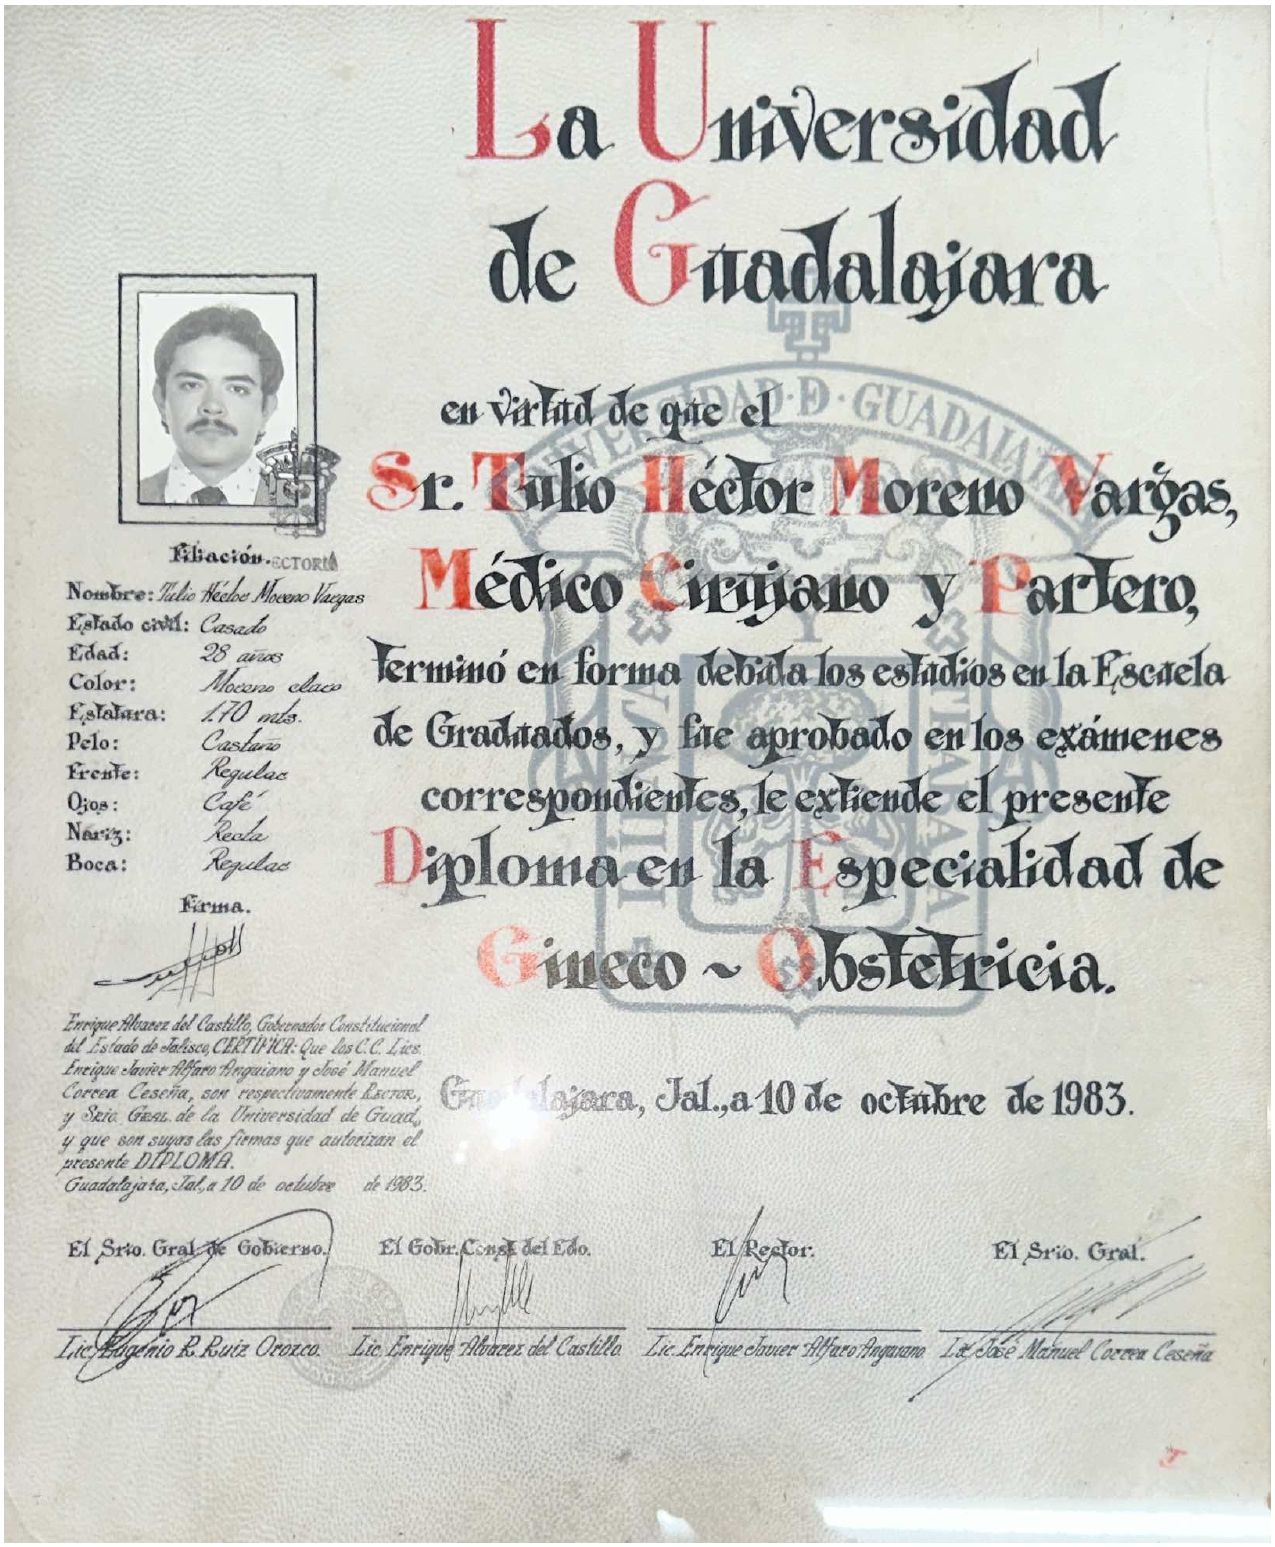 La Universidad
de Guadalajara
en virtud de que el
Sr. Tulio Héctor Moreno Vargas,
Médico Cirujano y Partero,
terminó en forma debida los estudios en la Escuela
de Graduados, y fue aprobado en los exámenes
correspondientes, le extiende el presente
Diploma en la Especialidad de
Gineco ~ Obstetricia.
Guadalajara, Jal., a 10 de octubre de 1983.
UNIVERSIDAD · D · GUADALAJARA
Filiación.
RECTORIA
Nombre: Tulio Héctor Moreno Vargas
Estado civil: Casado
Edad: 28 años
Color: Moreno claro
Estatura: 1.70 mts.
Pelo: Castaño
Frente: Regular
Ojos: Café
Nariz: Recta
Boca: Regular
Firma.
Enrique Alvarez del Castillo, Gobernador Constitucional
del Estado de Jalisco, CERTIFICA: Que los C.C. Lics.
Enrique Javier Alfaro Anguiano y José Manuel
Correa Ceseña, son respectivamente RECTOR,
y Srio. GRAL. de la Universidad de Guad.,
y que son suyas las firmas que autorizan el
presente DIPLOMA.
Guadalajara, Jal., a 10 de octubre de 1983.
El Srio. Gral. de Gobierno.
El Gobr. Const. del Edo.
El Rector.
El Srio. Gral.
Lic. Eugenio R. Ruiz Orozco.
Lic. Enrique Alvarez del Castillo
Lic. Enrique Javier Alfaro Anguiano
Lic. José Manuel Correa Ceseña